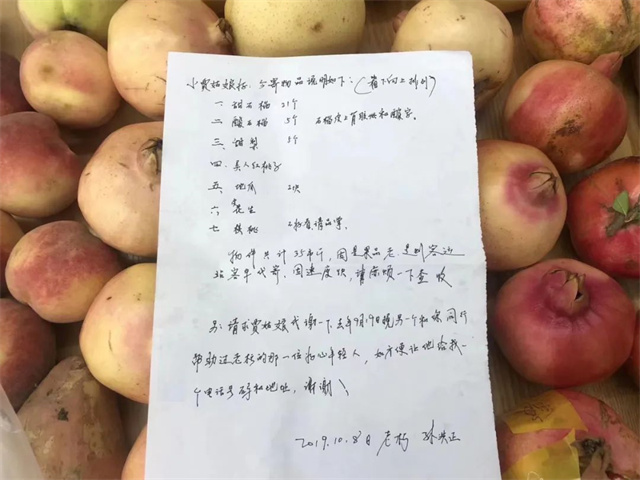 小贾姑娘好：今寄物品说明如下：（看下向上排列）
一. 甜石榴 21个
二. 酸石榴 5个 石榴皮上有胶水和酸字。
三. 甜梨 5个
四. 美人红桃子
五. 地瓜 2块
六. 花生
七. 核桃 请品尝。
物件共计35市斤，因是果品 走
站 代寄，因速度快，请 一下查收
另：请求贾姑娘代谢一下去年9月19日晚另一个和你同行
帮助过老朽的那一位热心年轻人，如方便让他给我一
个电话号码和地址，谢谢！
2019.10.8日 老朽 孙洪正